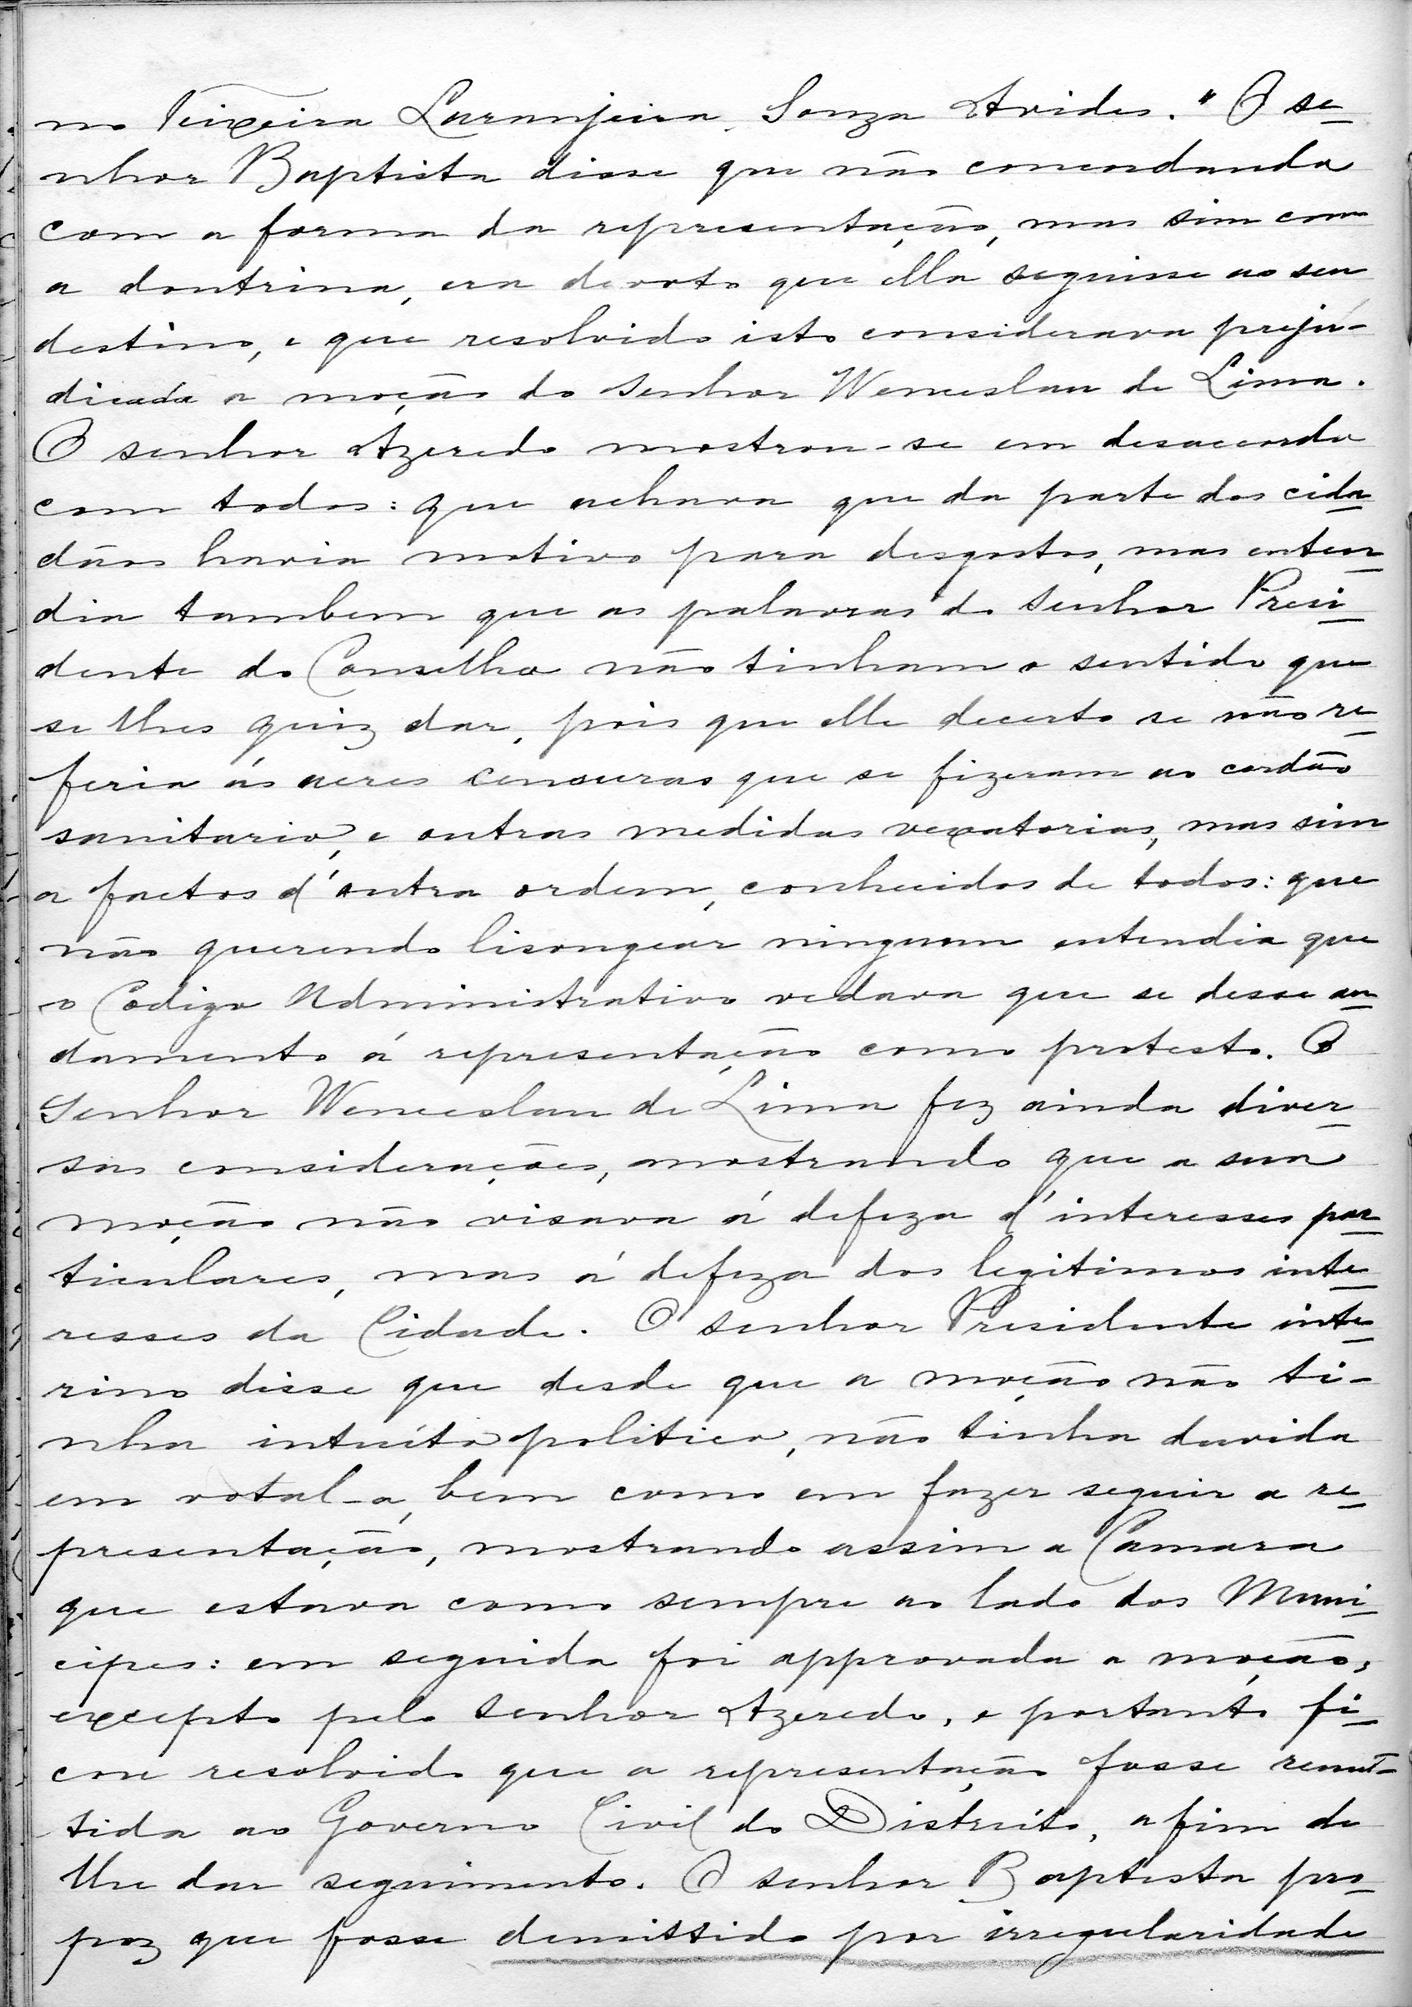 no Teixeira Laranjeira, Souza Avides." O se-
nhor Baptista disse que não concordando
com a forma da representação, mas sim com
a doutrina, era de voto que ella seguisse ao seu
destino, e que resolvido isto considerava preju-
dicada a moção do senhor Wenceslau de Lima.
O senhor Azeredo mostrou-se em desacordo
com todos: que achava que da parte dos cida-
dãos havia motivo para desgostos, mas enten-
dia tambem que as palavras do senhor Presi-
dente do Conselho não tinham o sentido que
se lhes quiz dar, pois que elle decerto se não re-
feria ás acres censuras que se fizeram ao cordão
sanitario, e outras medidas vexatorias, mas sim
a factos d'outra ordem, conhecidos de todos: que
não querendo lisongear ninguem entendia que
o Codigo Administrativo vedava que se desse an-
damento á representação como protesto. O
senhor Wenceslau de Lima fez ainda diver-
sas considerações, mostrando que a sua
moção não visava á defeza d'interesses par-
ticulares, mas á defeza dos legitimos inte-
resses da Cidade. O senhor Presidente inte-
rino disse que desde que a moção não ti-
nha intuito politico, não tinha duvida
em votal-a, bem como em fazer seguir a re-
presentação, mostrando assim a Camara
que estava como sempre ao lado dos Muni-
cipes: em seguida foi approvada a moção,
excepto pelo senhor Azeredo, e portanto fi-
cou resolvido que a representação fosse remet-
tida ao Governo Civil do Districto, a fim de
lhe dar seguimento. O senhor Baptista pro-
poz que fosse demittido por irregularidade